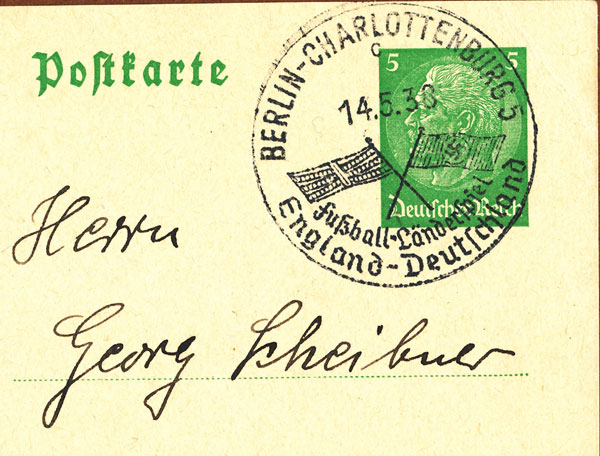 Postkarte
5 5
Deutsches Reich
BERLIN-CHARLOTTENBURG 5
c
14.5.38
Fußball-Länderspiel
England-Deutschland
Herrn
Georg Scheibner